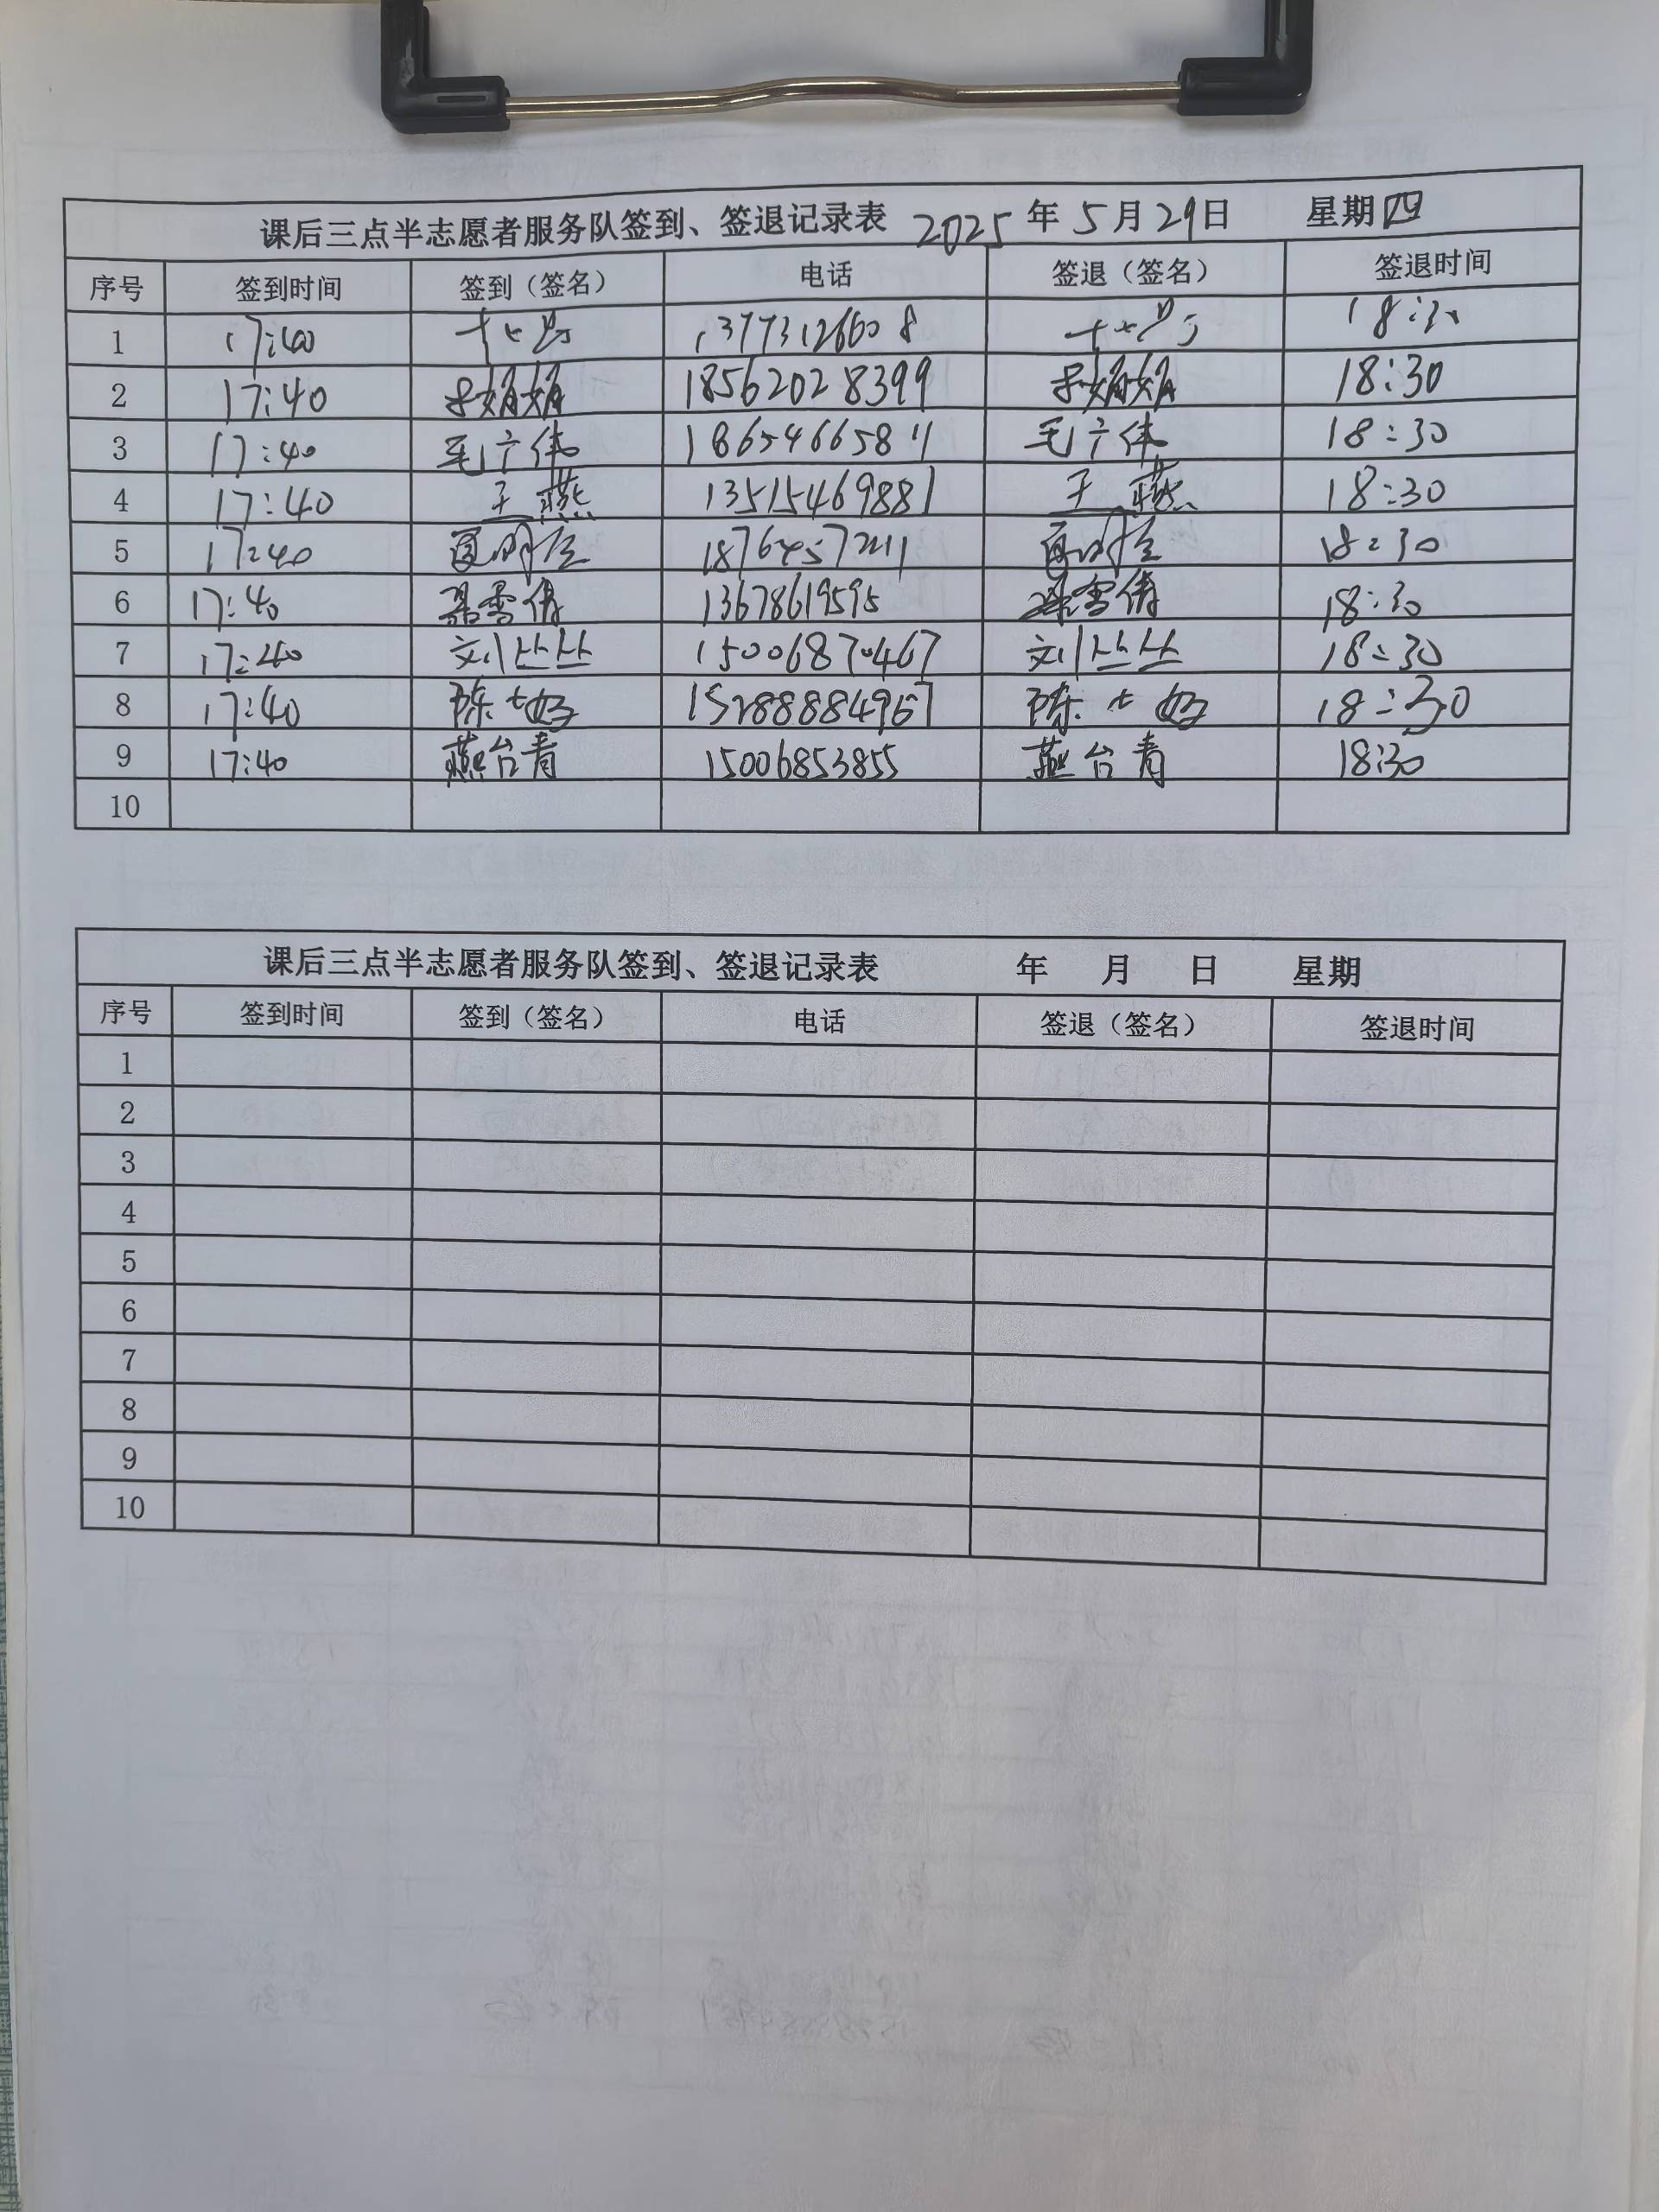 课后三点半志愿者服务队签到、签退记录表 2025 年 5 月 29 日 星期四
序号 签到时间 签到（签名） 电话 签退（签名） 签退时间
1 17:40 13773126608 18:30
2 17:40 娟娟 18562028399 娟娟 18:30
3 17:40 毛广伟 毛广伟 18:30
4 17:40 王燕 13515469881 王燕 18:30
5 17:40 18:30
6 17:40 梁雪倩 13678619595 梁雪倩 18:30
7 17:40 刘丛丛 15006870467 刘丛丛 18:30
8 17:40 陈 15288884967 陈 18:30
9 17:40 燕台青 15006853855 燕台青 18:30
10
课后三点半志愿者服务队签到、签退记录表 年 月 日 星期
序号 签到时间 签到（签名） 电话 签退（签名） 签退时间
1
2
3
4
5
6
7
8
9
10